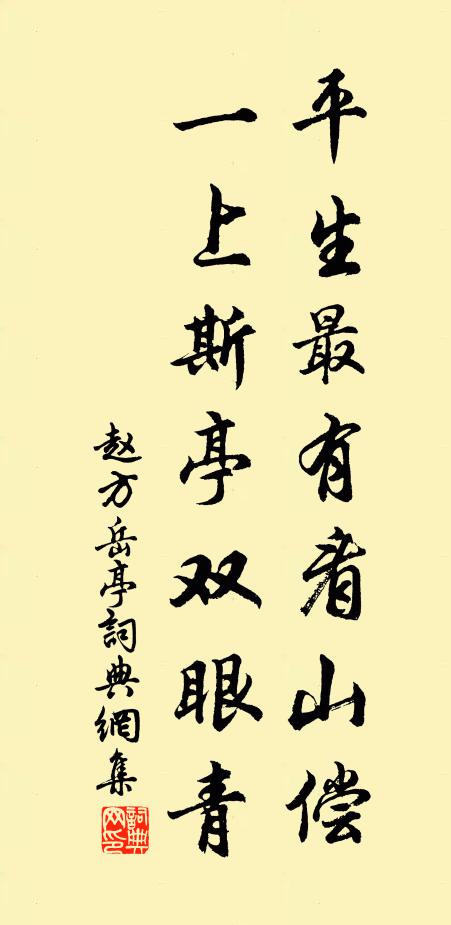 平生最有看山偿
一上斯亭双眼青
赵方岳亭詞典網集
詞典网印